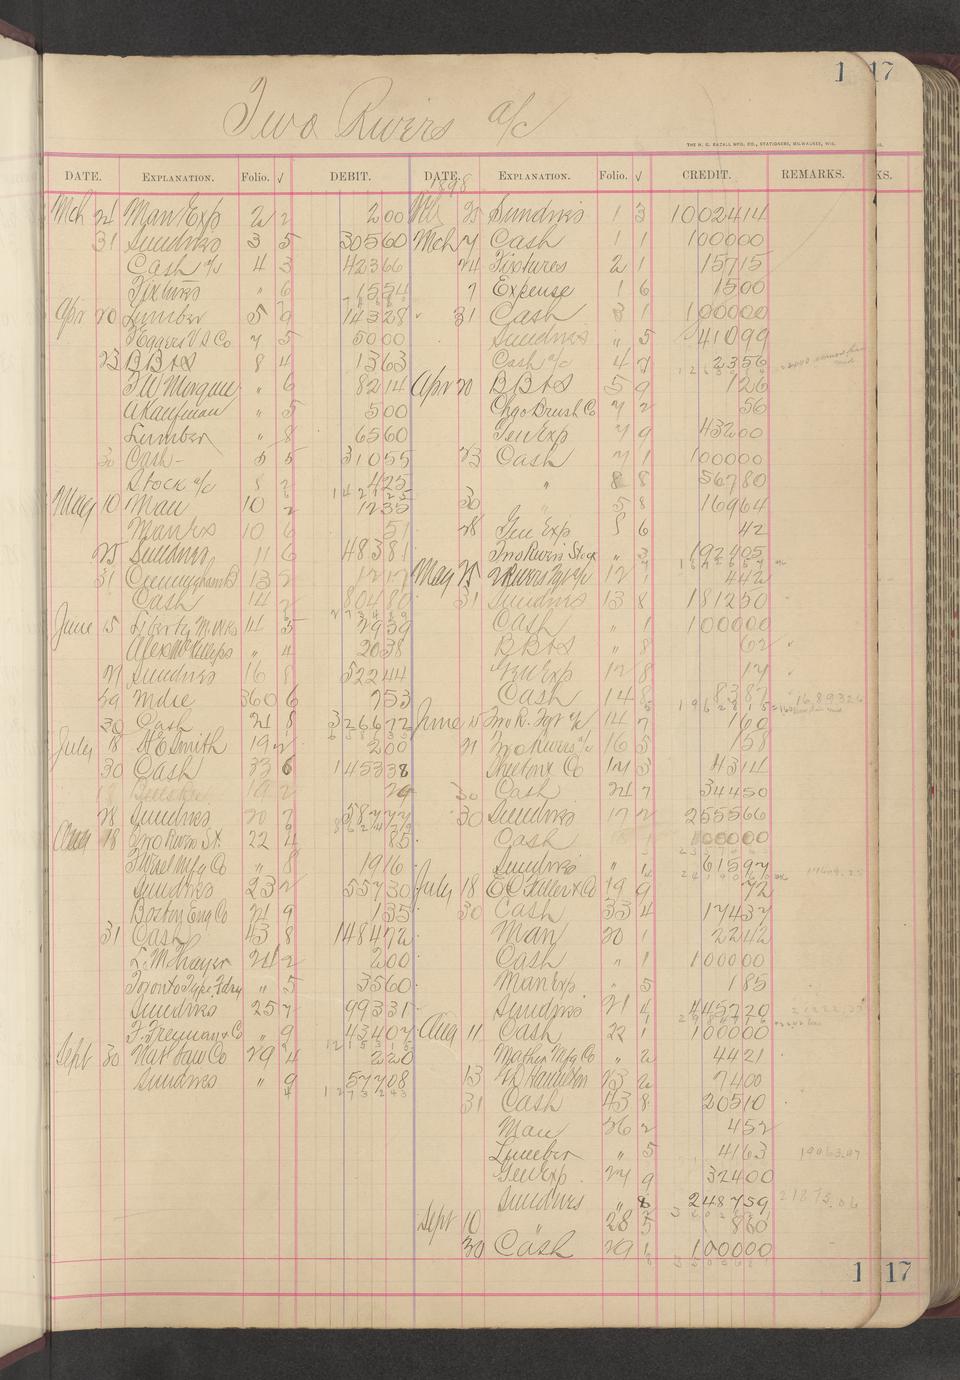 1 17
Two Rivers a/c
THE H. G. RAZALL MFG. CO., STATIONERS, MILWAUKEE, WIS.
DATE. EXPLANATION. Folio. √ DEBIT.
Mch 24 Man Exp 2 2 200
31 Sundries 3 5 30560
Cash a/c 4 3 42366
Fixtures " 6 1554
Apr 20 Lumber 5 9 14328
F Eggers V S Co 7 5 5000
23 B B & S 8 4 1363
" 6 8214
A Kaufman " 5 500
Lumber " 8 6560
30 Cash - 5 5 31055
Stock a/c 8 2 425
May 10 Man 10 2 1235
Man Ex 10 6 51
25 Sundries 11 6 48381
31 13 2 1217
Cash 14 2 80480
June 15 Liberty M. Wks 14 5 2939
Alex McKillips " 4 2038
21 Sundries 16 8 52244
29 Mdse 360 6 753
30 Cash 21 8 326672
July 18 H E Smith 19 2 200
30 Cash 33 6 145338
18 19 2 29
28 Sundries 20 7 58777
Aug 18 Two Rivers St. 22 4 85
Mfg Co " 8 1916
Sundries 23 2 55730
Boston Eng Co 24 9 135
31 Cash 43 8 148472
L. M Thayer 24 2 200
Toronto Type Fdry " 5 3560
Sundries 25 7 99331
F. Freeman & Co " 9 43407
Sept 30 Nat Saw Co 29 4 220
Sundries " 9 57708
127 3 2 43
DATE. EXPLANATION. Folio. √ CREDIT. REMARKS.
1898
25 Sundries 1 3 1002414
Mch 7 Cash 1 1 100000
24 Fixtures 2 1 15715
7 Expense 1 6 1500
31 Cash 3 1 100000
Sundries " 5 41099
Cash a/c 4 7 2356
Apr 20 B B & S 5 9 126
Chgo Brush Co 7 2 56
Gen Exp 7 9 43200
23 Cash 7 1 100000
" 8 8 56780
30 " 5 8 16964
28 Gen Exp 8 6 42
Two Rivers St. a/c " 3 192405
May 25 2 Rivers Fgt a/c 12 1 442
31 Sundries 13 8 181250
Cash " 1 100000
B B & S " 8 62
Gen Exp 12 8 17
Cash 14 8 8387
June 15 Two R. Fgt a/c 14 7 160
21 Two Rivers a/c 16 5 158
Co 17 3 4314
30 Cash 21 7 34450
30 Sundries 17 2 255566
Cash 1 100000
Sundries " 1 61597
July 18 E C Fuller & Co 19 9 72
30 Cash 33 4 17437
Man 20 1 2242
Cash " 1 100000
Man Exp " 5 185
Sundries 21 4 445720
Aug 11 Cash 22 1 100000
Mather Mfg Co " 2 4421
13 23 2 7400
31 Cash 43 8 20510
Man 26 2 452
Lumber " 5 4163
19963.97
Gen Exp 27 9 32400
Sundries " 8 248759
21875.06
Sept 10 " 28 5 860
30 Cash 29 1 100000
1 17